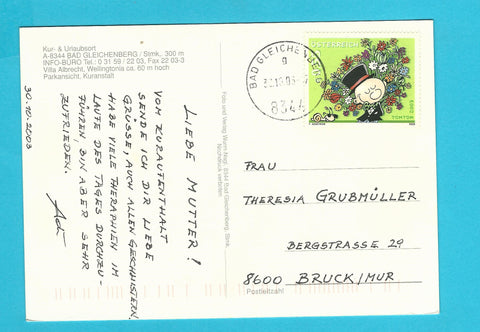 Kur- & Urlaubsort
A-8344 BAD GLEICHENBERG / Stmk., 300 m
INFO-BÜRO Tel.: 0 31 59 / 22 03, Fax 22 03-3
Villa Albrecht, Wellingtonia ca. 60 m hoch
Parkansicht, Kuranstalt
30.10.2003
LIEBE MUTTER!
VOM KURAUFENTHALT
SENDE ICH DIR LIEBE
GRÜSSE, AUCH ALLEN GESCHWISTERN.
HABE VIELE THERAPHIEN IM
LAUFE DES TAGES DURCHZU-
FÜHREN, BIN ABER SEHR
ZUFRIEDEN.
8344 Bad Gleichenberg, Stmk.
BAD GLEICHENBERG
g
8344
ÖSTERREICH
TOMTOM
FRAU
THERESIA GRUBMÜLLER
BERGSTRASSE 29
8600 BRUCK/MUR
Postleitzahl